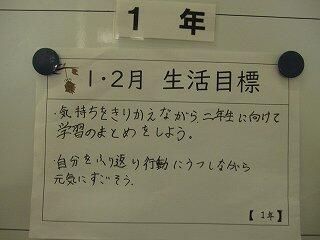 1年
1・2月 生活目標
・気持ちをきりかえながら、二年生に向けて
学習のまとめをしよう。
・自分をふり返り行動にうつしながら
元気にすごそう。
【1年】